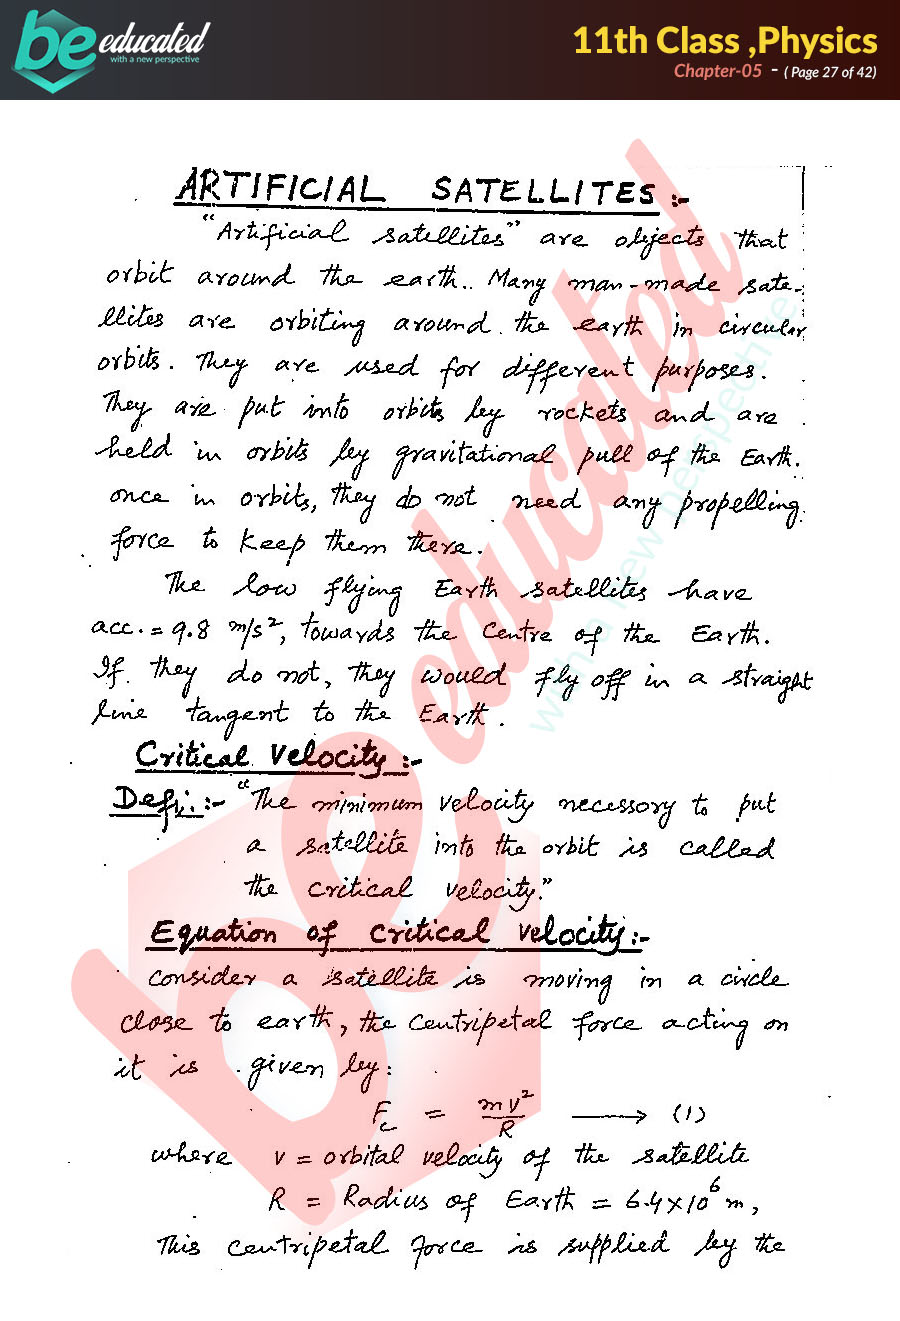 be educated
with a new perspective
11th Class ,Physics
Chapter-05 - ( Page 27 of 42)
ARTIFICIAL SATELLITES :-
"Artificial satellites" are objects that
orbit around the earth.. Many man-made sate-
llites are orbiting around the earth in circular
orbits. They are used for different purposes.
They are put into orbits by rockets and are
held in orbits by gravitational pull of the Earth.
once in orbits, they do not need any propelling
force to keep them there.
The low flying Earth satellites have
acc. = 9.8 m/s², towards the Centre of the Earth.
If they do not, they would fly off in a straight
line tangent to the Earth.
Critical Velocity :-
Defi. :- "The minimum velocity necessory to put
a satellite into the orbit is called
the critical velocity."
Equation of critical velocity :-
Consider a satellite is moving in a circle
close to earth, the centripetal force acting on
it is given by:
F_c = mv²/R ⟶ (1)
where v = orbital velocity of the satellite
R = Radius of Earth = 6.4×10⁶ m,
This centripetal force is supplied by the
be educated
with a new perspective